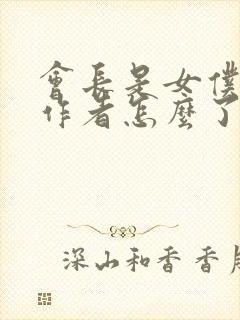 會長是女僕
作者怎麼了
深山和香 香